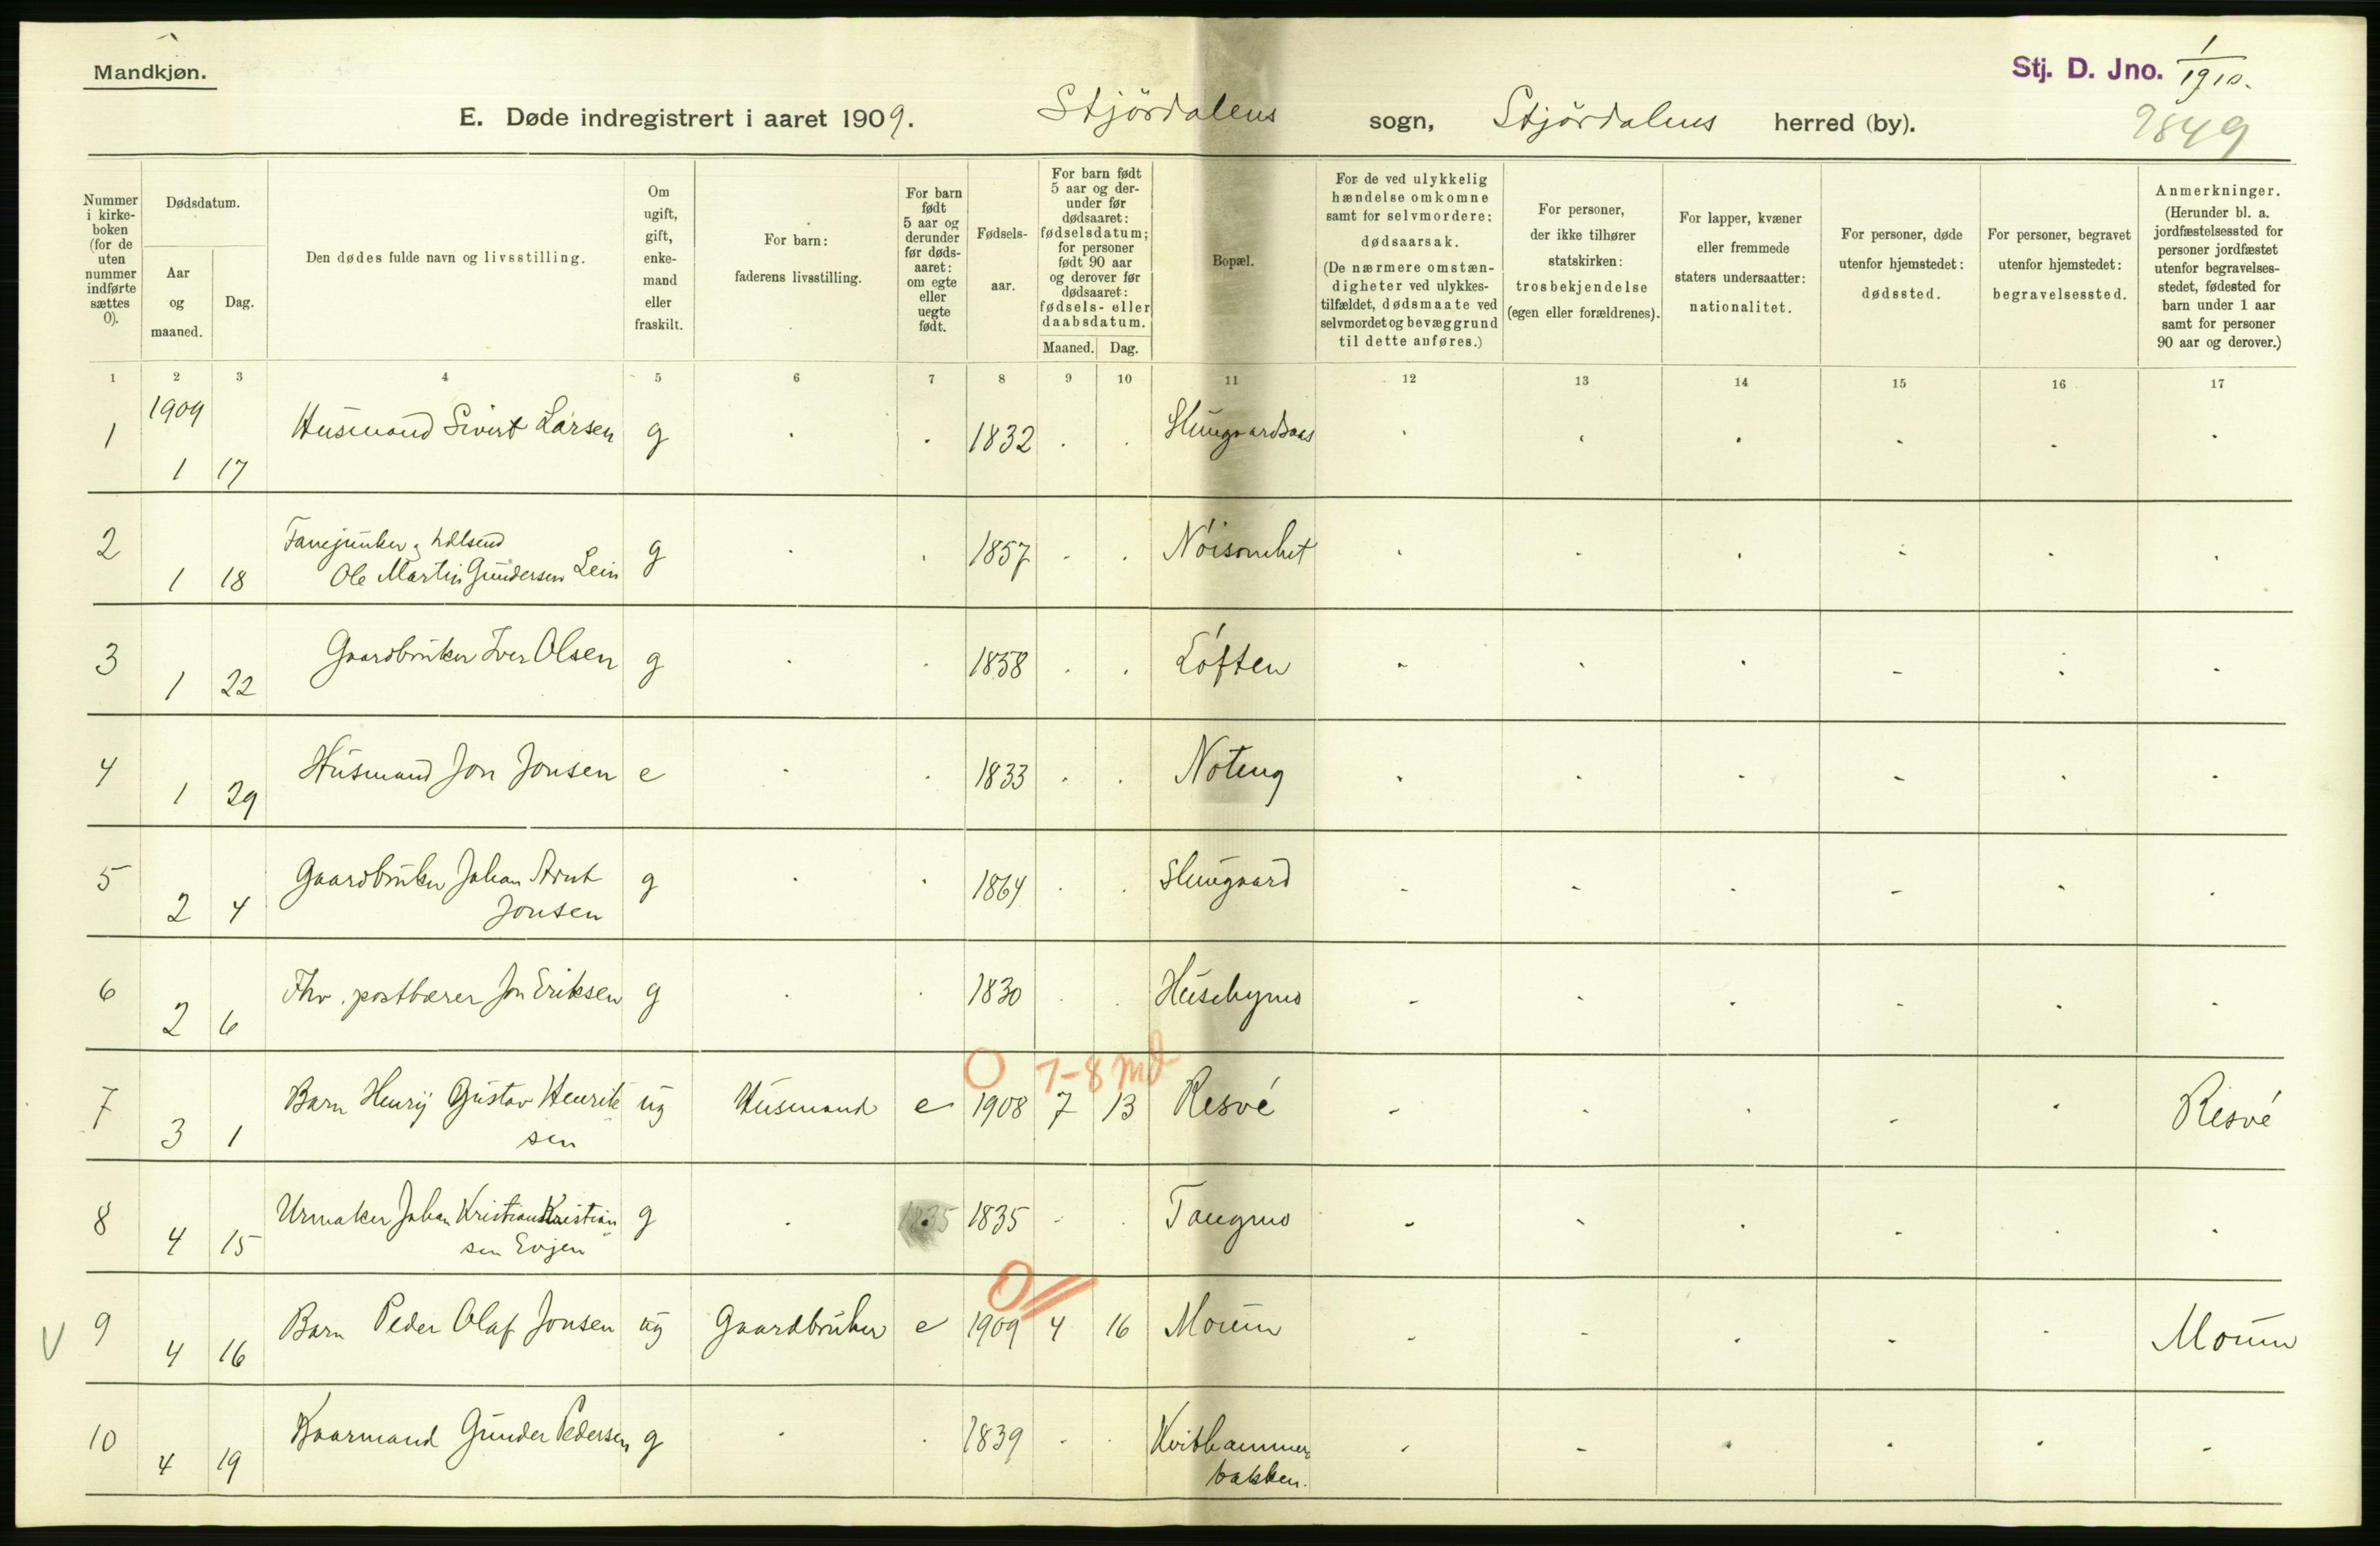 Mandkjøn.
Stj. D. Jno. 1/1910.
E. Døde indregistrert i aaret 1909. Stjørdalens sogn, Stjørdalens herred (by).
2849
Nummer i kirke-boken (for de uten nummer indførte sættes 0).
Dødsdatum.
Aar og maaned.
Dag.
Den dødes fulde navn og livsstilling.
Om ugift, gift, enke-mand eller fraskilt.
For barn: faderens livsstilling.
For barn født 5 aar og derunder før døds-aaret: om egte eller uegte født.
Fødsels-aar.
For barn født 5 aar og der-under før dødsaaret: fødselsdatum; for personer født 90 aar og derover før dødsaaret: fødsels- eller daabsdatum.
Maaned. Dag.
Bopæl.
For de ved ulykkelig hændelse omkomne samt for selvmordere: dødsaarsak. (De nærmere omstæn-digheter ved ulykkes-tilfældet, dødsmaate ved selvmordet og bevæggrund til dette anføres.)
For personer, der ikke tilhører statskirken: trosbekjendelse (egen eller forældrenes).
For lapper, kvæner eller fremmede staters undersaatter: nationalitet.
For personer, døde utenfor hjemstedet: dødssted.
For personer, begravet utenfor hjemstedet: begravelsessted.
Anmerkninger. (Herunder bl. a. jordfæstelsessted for personer jordfæstet utenfor begravelses-stedet, fødested for barn under 1 aar samt for personer 90 aar og derover.)
1 2 3 4 5 6 7 8 9 10 11 12 13 14 15 16 17
1909
1 1 17 Husmand Sivert Larsen g 1832
2 1 18 Fanejunker
Ole Martin Gundersen Lein g 1857 Nöisomhet
3 1 22 Gaardbruker Iver Olsen g 1858 Löften
4 1 29 Husmand Jon Jonsen e 1833
5 2 4 Gaardbruker Johan
Jonsen g 1864
6 2 6 Fhv. postbærer Jon Eriksen g 1830 Husebymo
0 7-8 md
7 3 1 Barn Henry Gustav Henrik
sen ug Husmand e 1908 7 13 Resvé Resvé
8 4 15 Urmaker Johan Kristian Kristian
sen Evjen g 1835 1835 Tangmo
0
V 9 4 16 Barn Peder Olaf Jonsen ug Gaardbruker e 1909 4 16 Moum Moum
10 4 19 Kaarmand Gunder Pedersen g 1839 Kvithammer
bakken.